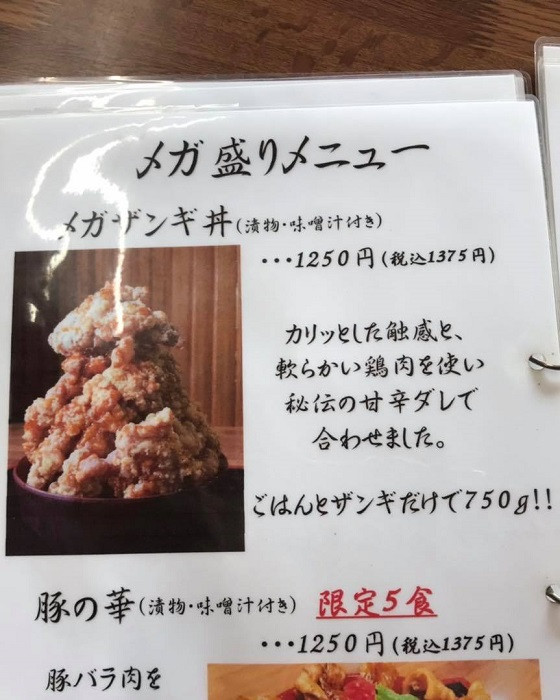 メガ盛りメニュー
メガザンギ丼(漬物・味噌汁付き)
・・・1250円(税込1375円)
カリッとした触感と、
軟らかい鶏肉を使い
秘伝の甘辛ダレで
合わせました。
ごはんとザンギだけで750g!!
豚の華(漬物・味噌汁付き) 限定5食
・・・1250円(税込1375円)
豚バラ肉を